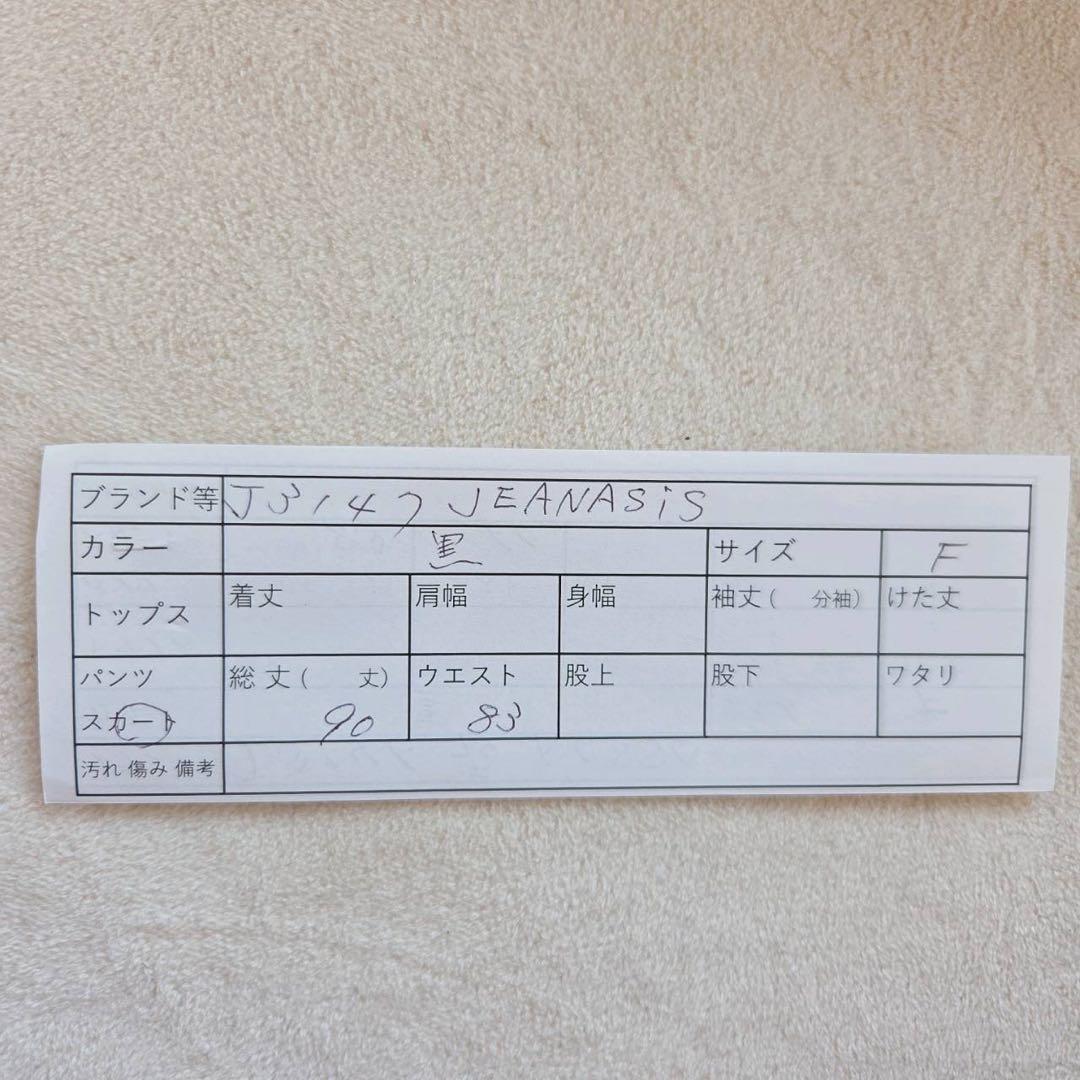 ブランド等 J3147 JEANASiS
カラー 黒 サイズ F
トップス 着丈 肩幅 身幅 袖丈( 分袖) けた丈
パンツ 総丈( 丈) ウエスト 股上 股下 ワタリ
スカート 90 83
汚れ 傷み 備考